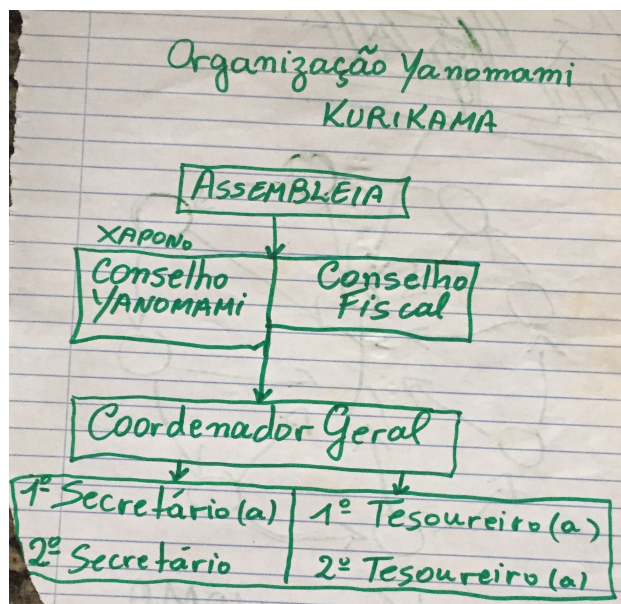 Organização Yanomami
KURIKAMA
ASSEMBLEIA
XAPONO
Conselho
YANOMAMI
Conselho
Fiscal
Coordenador Geral
1º Secretário(a)
2º Secretário
1º Tesoureiro(a)
2º Tesoureiro(a)